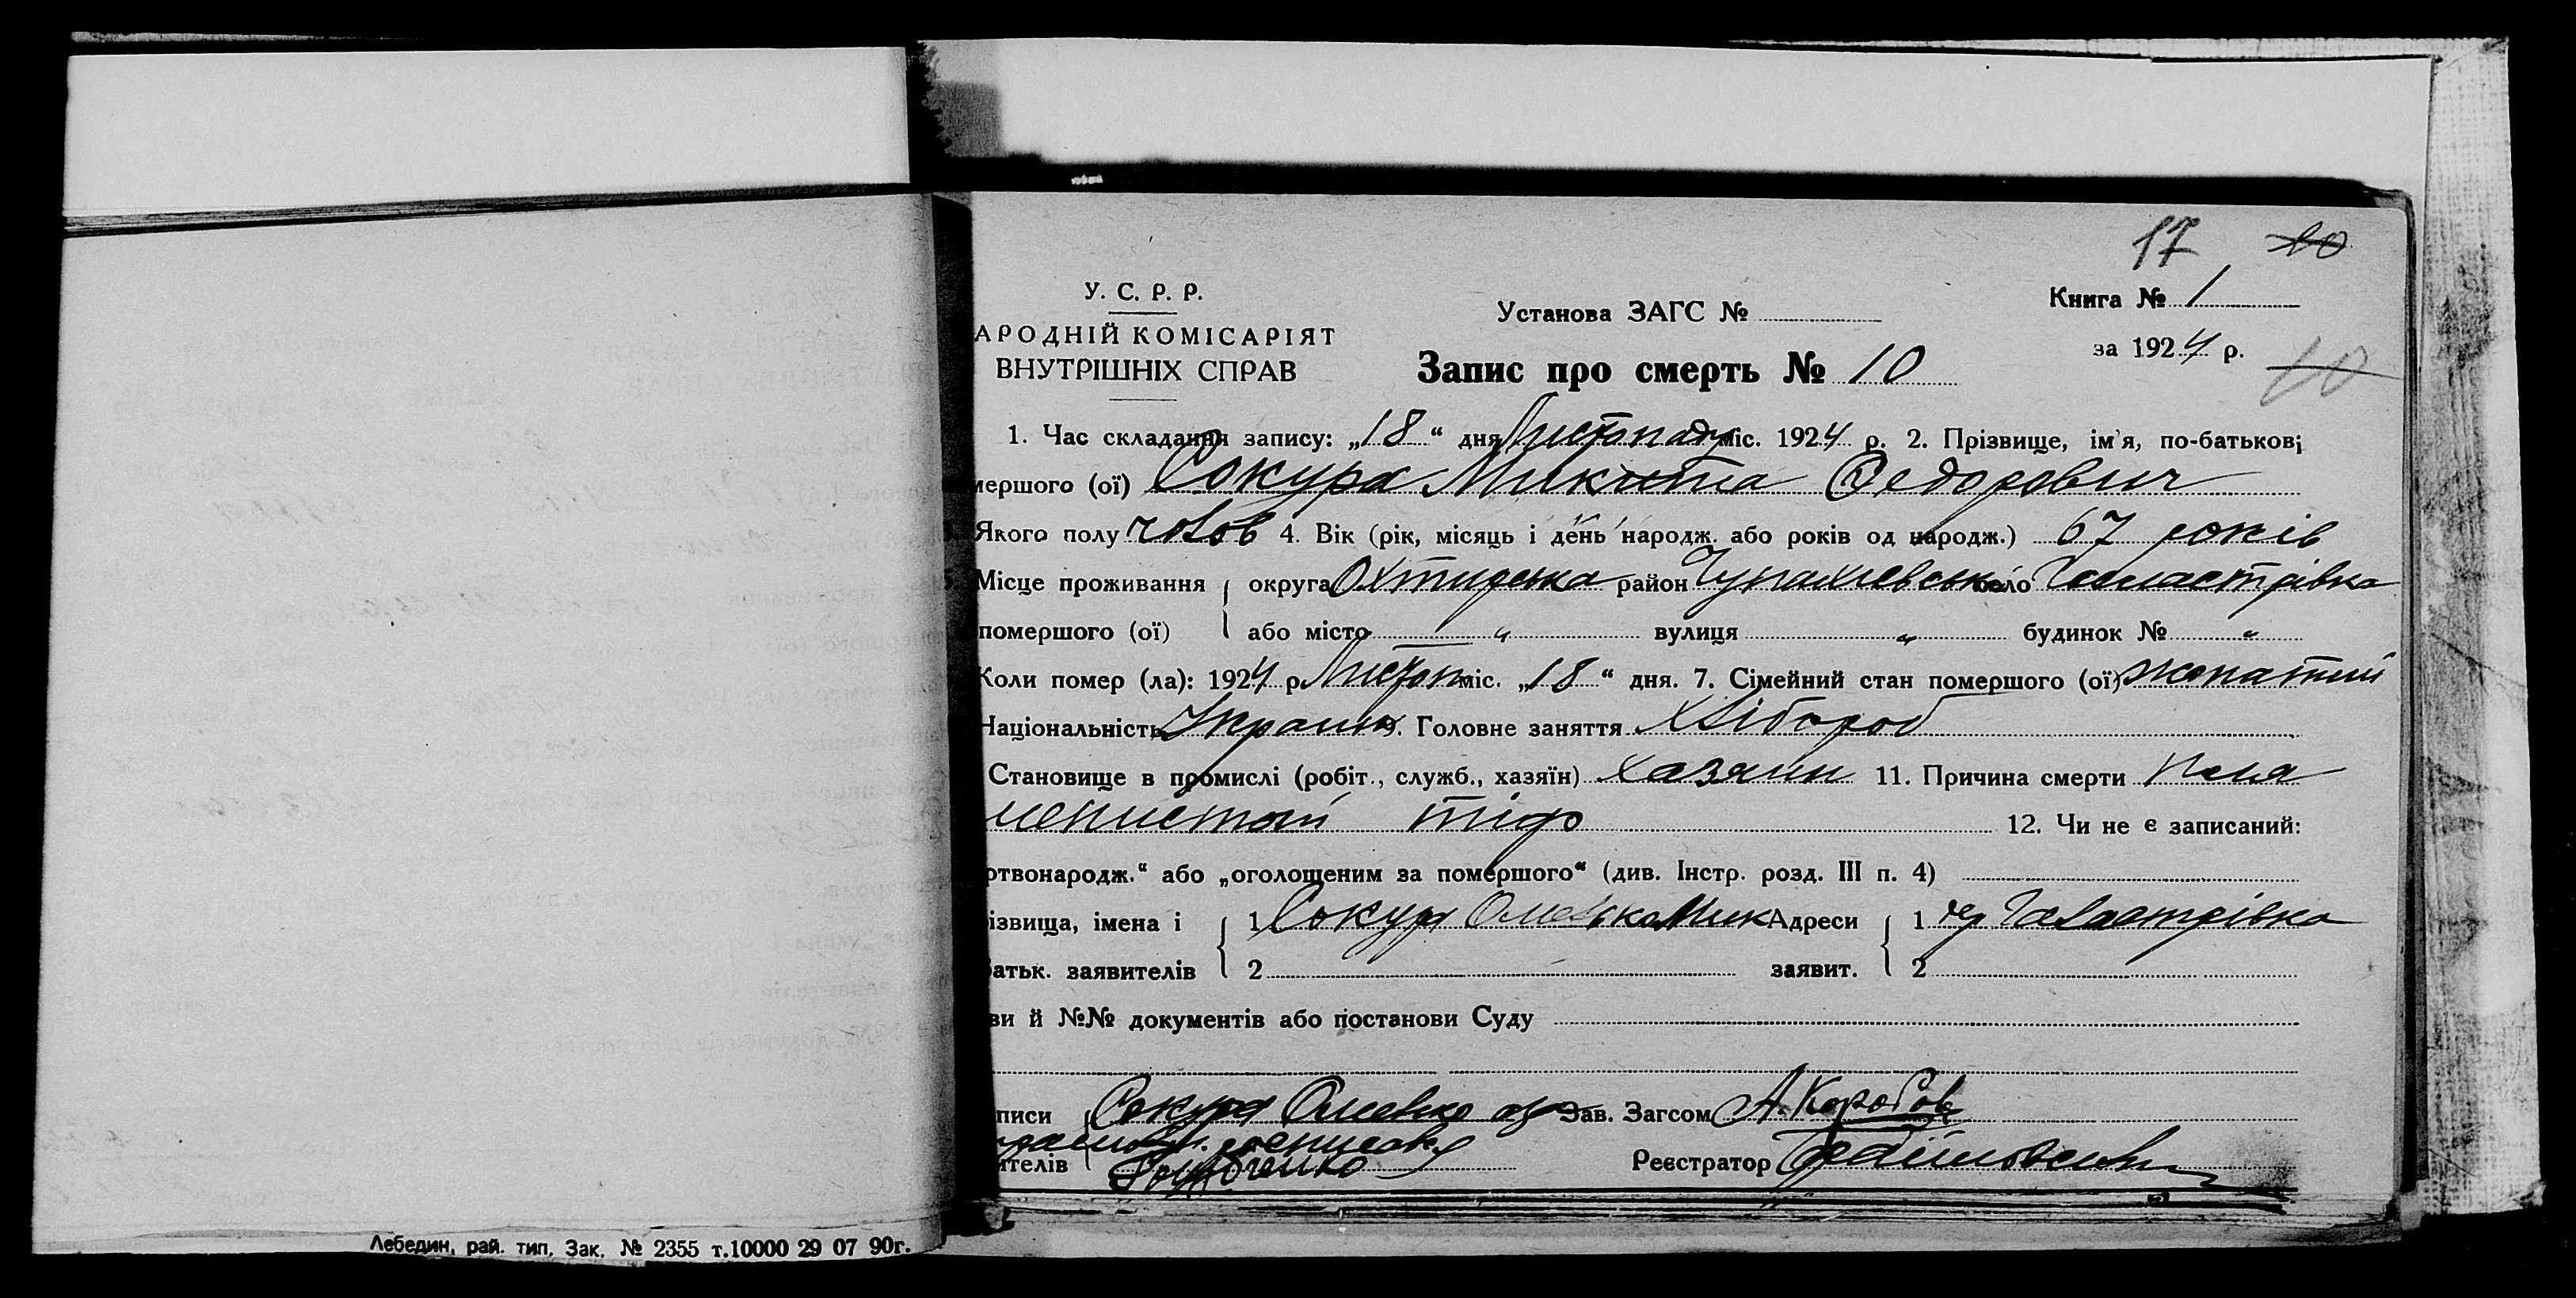 17 10
У. С. Р. Р.
АРОДНІЙ КОМІСАРІЯТ
ВНУТРІШНІХ СПРАВ
Установа ЗАГС №
Книга № 1
за 1924 р. 10
Запис про смерть № 10
1. Час складання запису: „18“ дня Листопаду міс. 1924 р. 2. Прізвище, ім'я, по-батькові
мершого (ої) Сокура Микита Федорович
Якого полу чолов 4. Вік (рік, місяць і день народж. або років од народж.) 67 років
Місце проживання округа Охтирська район Чупахієвськ село Галастрівка
помершого (ої) або місто „ вулиця „ будинок № „
Коли помер (ла): 1924 р. Листоп міс. „18“ дня. 7. Сімейний стан помершого (ої) жонатий
Національність Украин 9. Головне заняття Хлібороб
Становище в промислі (робіт., служб., хазяїн) Хазяин 11. Причина смерти
тіф 12. Чи не є записаний:
ртвонародж.“ або „оголошеним за помершого“ (див. Інстр. розд. III п. 4)
ізвища, імена і 1 Сокура Мик Адреси 1 Галастрівка
атьк. заявителів 2 заявит. 2
ви й №№ документів або постанови Суду
писи Сокура Зав. Загсом А. Коробов
ителів Реєстратор
Лебедин, рай. тип. Зак. № 2355 т.10000 29 07 90г.